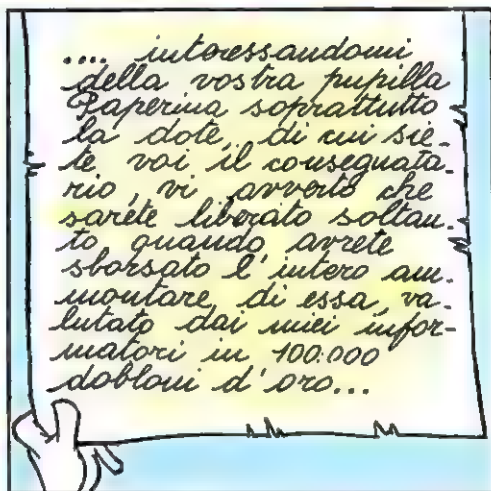 .... interessandomi
della vostra pupilla
Paperina soprattutto
la dote, di cui sie-
te voi il consegnata-
rio, vi avverto che
sarete liberato soltan-
to quando avrete
sborsato l'intero am-
montare di essa, va-
lutato dai miei infor-
matori in 100.000
dobloni d'oro...